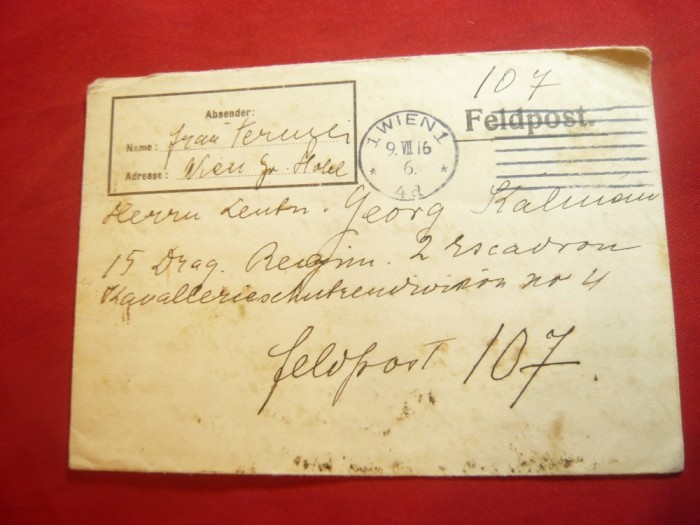 107
Feldpost.
Absender:
Name: Frau
Adresse: Wien Gr. Hotel
1 WIEN 1
9. VII 16
6.
* 4d *
Herrn Leutn. Georg Kálmán
15 Drag. Regim. 2 Escadron
Kavallerieschützendivision no 4
Feldpost 107.